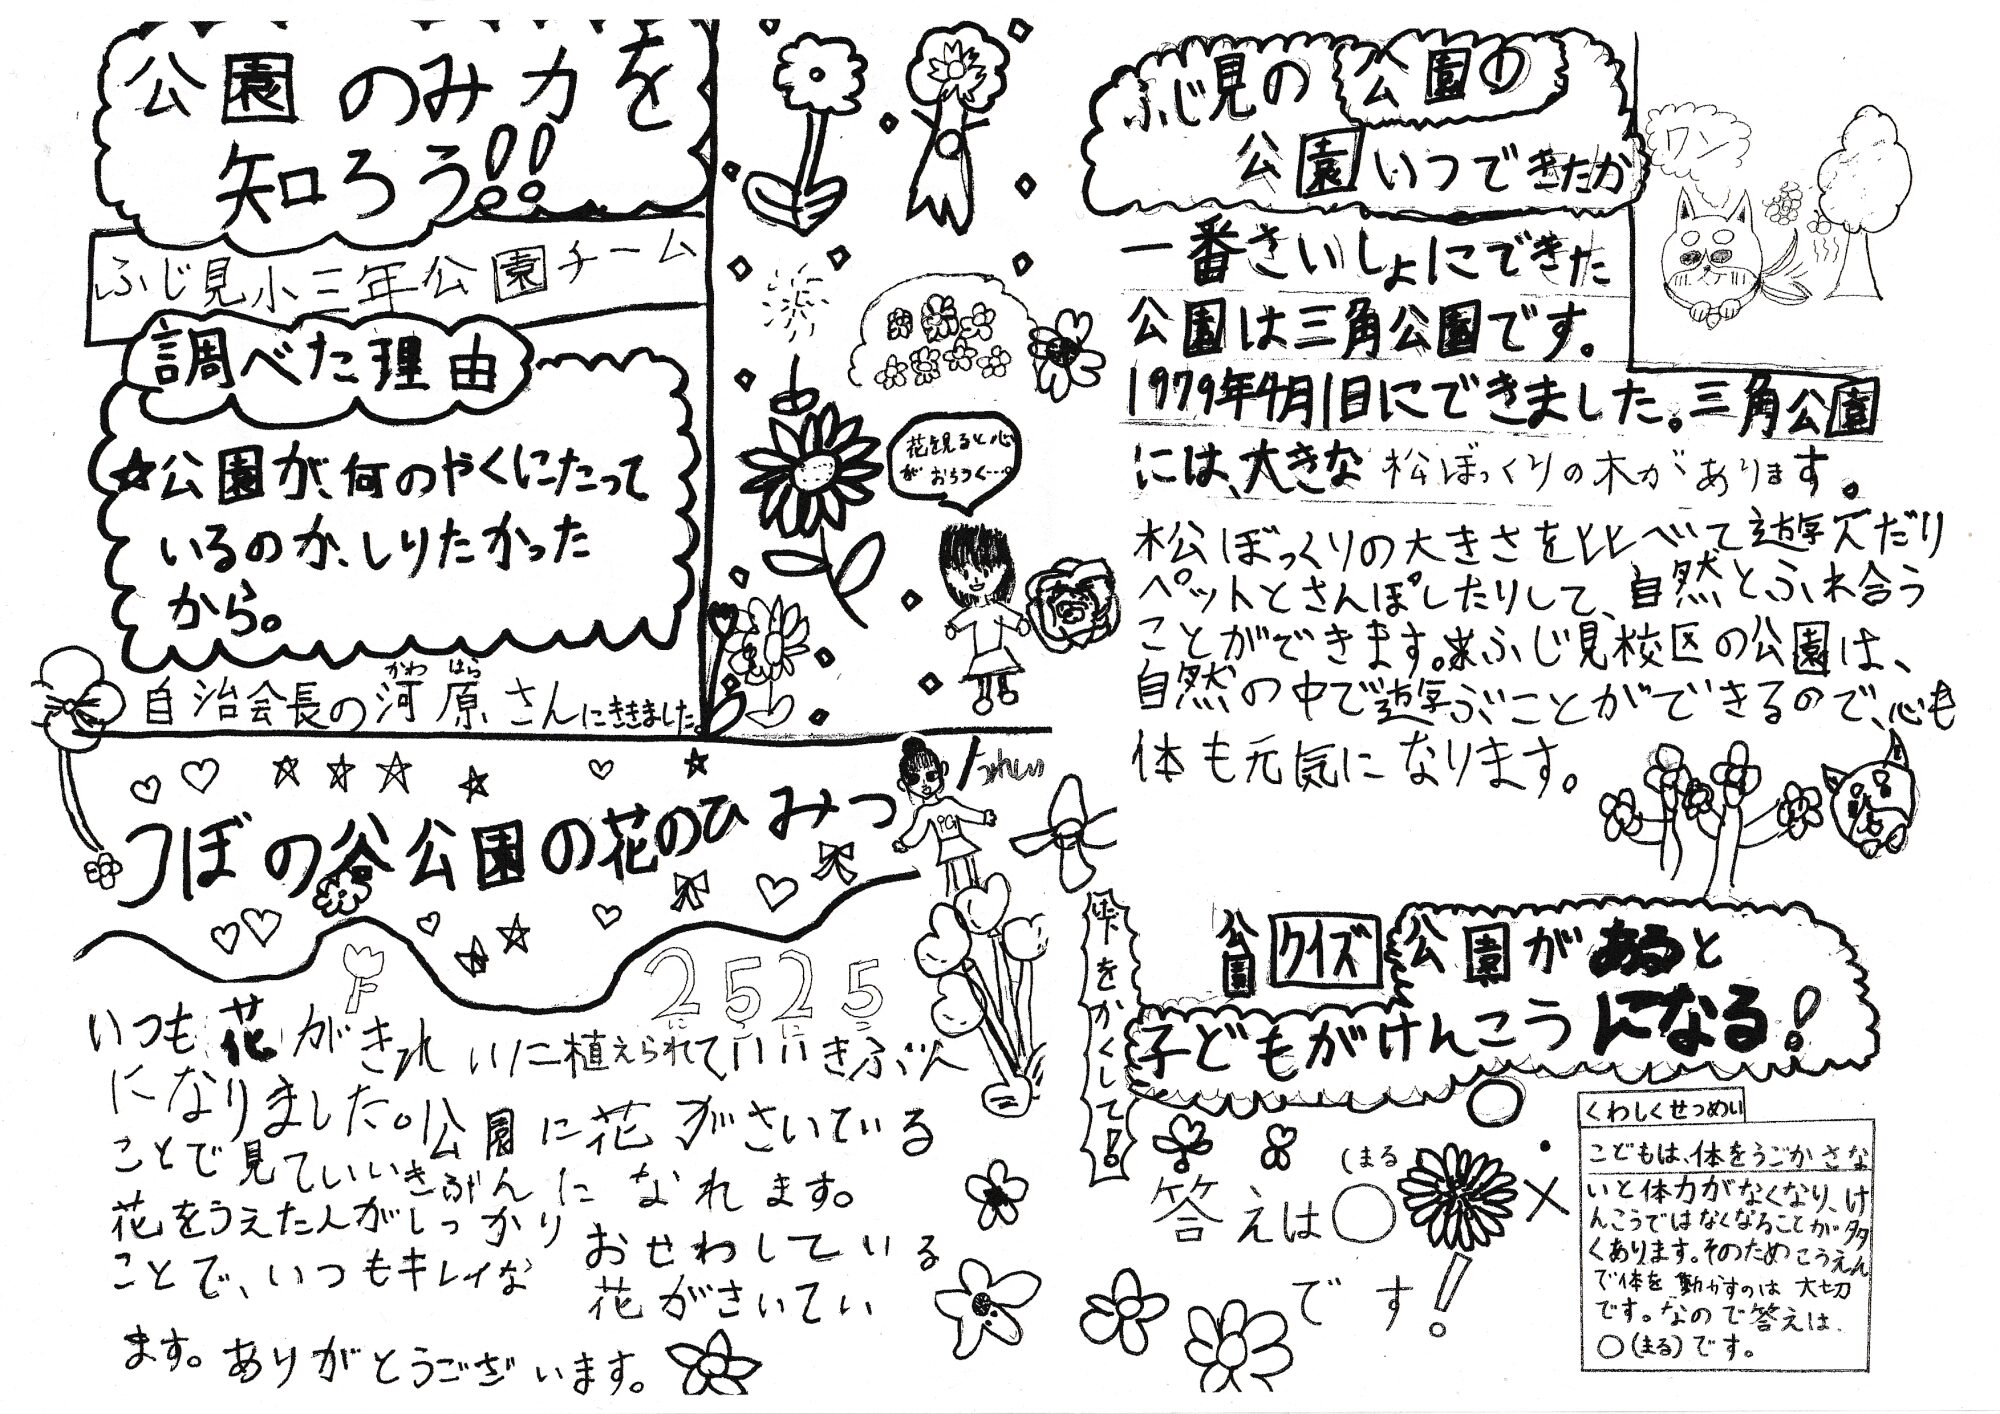 公園のみ力を
知ろう!!
ふじ見小三年公園チーム
調べた理由
☆公園が、何のやくにたって
いるのか、しりたかった
から。
自治会長の河原さんにききました。
かわ はら
花を見ると心
がおちつく…。
つぼの谷公園の花のひみつ
2525
に こ に こ
いつも花がきれいに植えられていいきぶん
になりました。公園に花がさいている
ことで見ていいきぶんになれます。
花をうえた人がしっかりおせわしている
ことで、いつもキレイな花がさいてい
ます。ありがとうございます。
ふじ見の公園の
公園いつできたか
ワン
一番さいしょにできた
公園は三角公園です。
1979年4月1日にできました。三角公園
には、大きな松ぼっくりの木があります。
松ぼっくりの大きさを比べて遊んだり
ペットとさんぽしたりして、自然とふれ合う
ことができます。ふじ見校区の公園は、
自然の中で遊ぶことができるので、心も
体も元気になります。
公園クイズ
公園があると
子どもがけんこうになる!
下をかくして!
答えは○
(まる
×
です!
くわしくせつめい
こどもは、体をうごかさな
いと体力がなくなり、け
んこうではなくなることが多
くあります。そのためこうえん
で体を動かすのは大切
です。なので答えは、
○(まる)です。